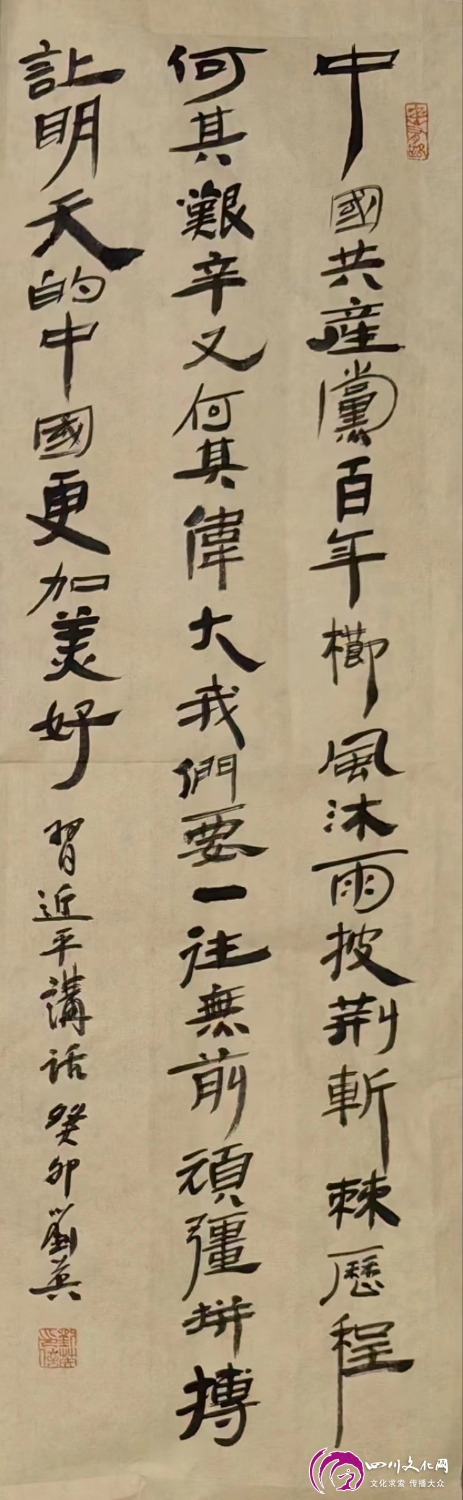 中國共産黨百年櫛風沐雨披荆斬棘歷程
何其艱辛又何其偉大我們要一往無前頑彊拼搏
訟明天的中國更加美好 習近平講話 癸卯劉英
四川文化网
文化求索 传播大众